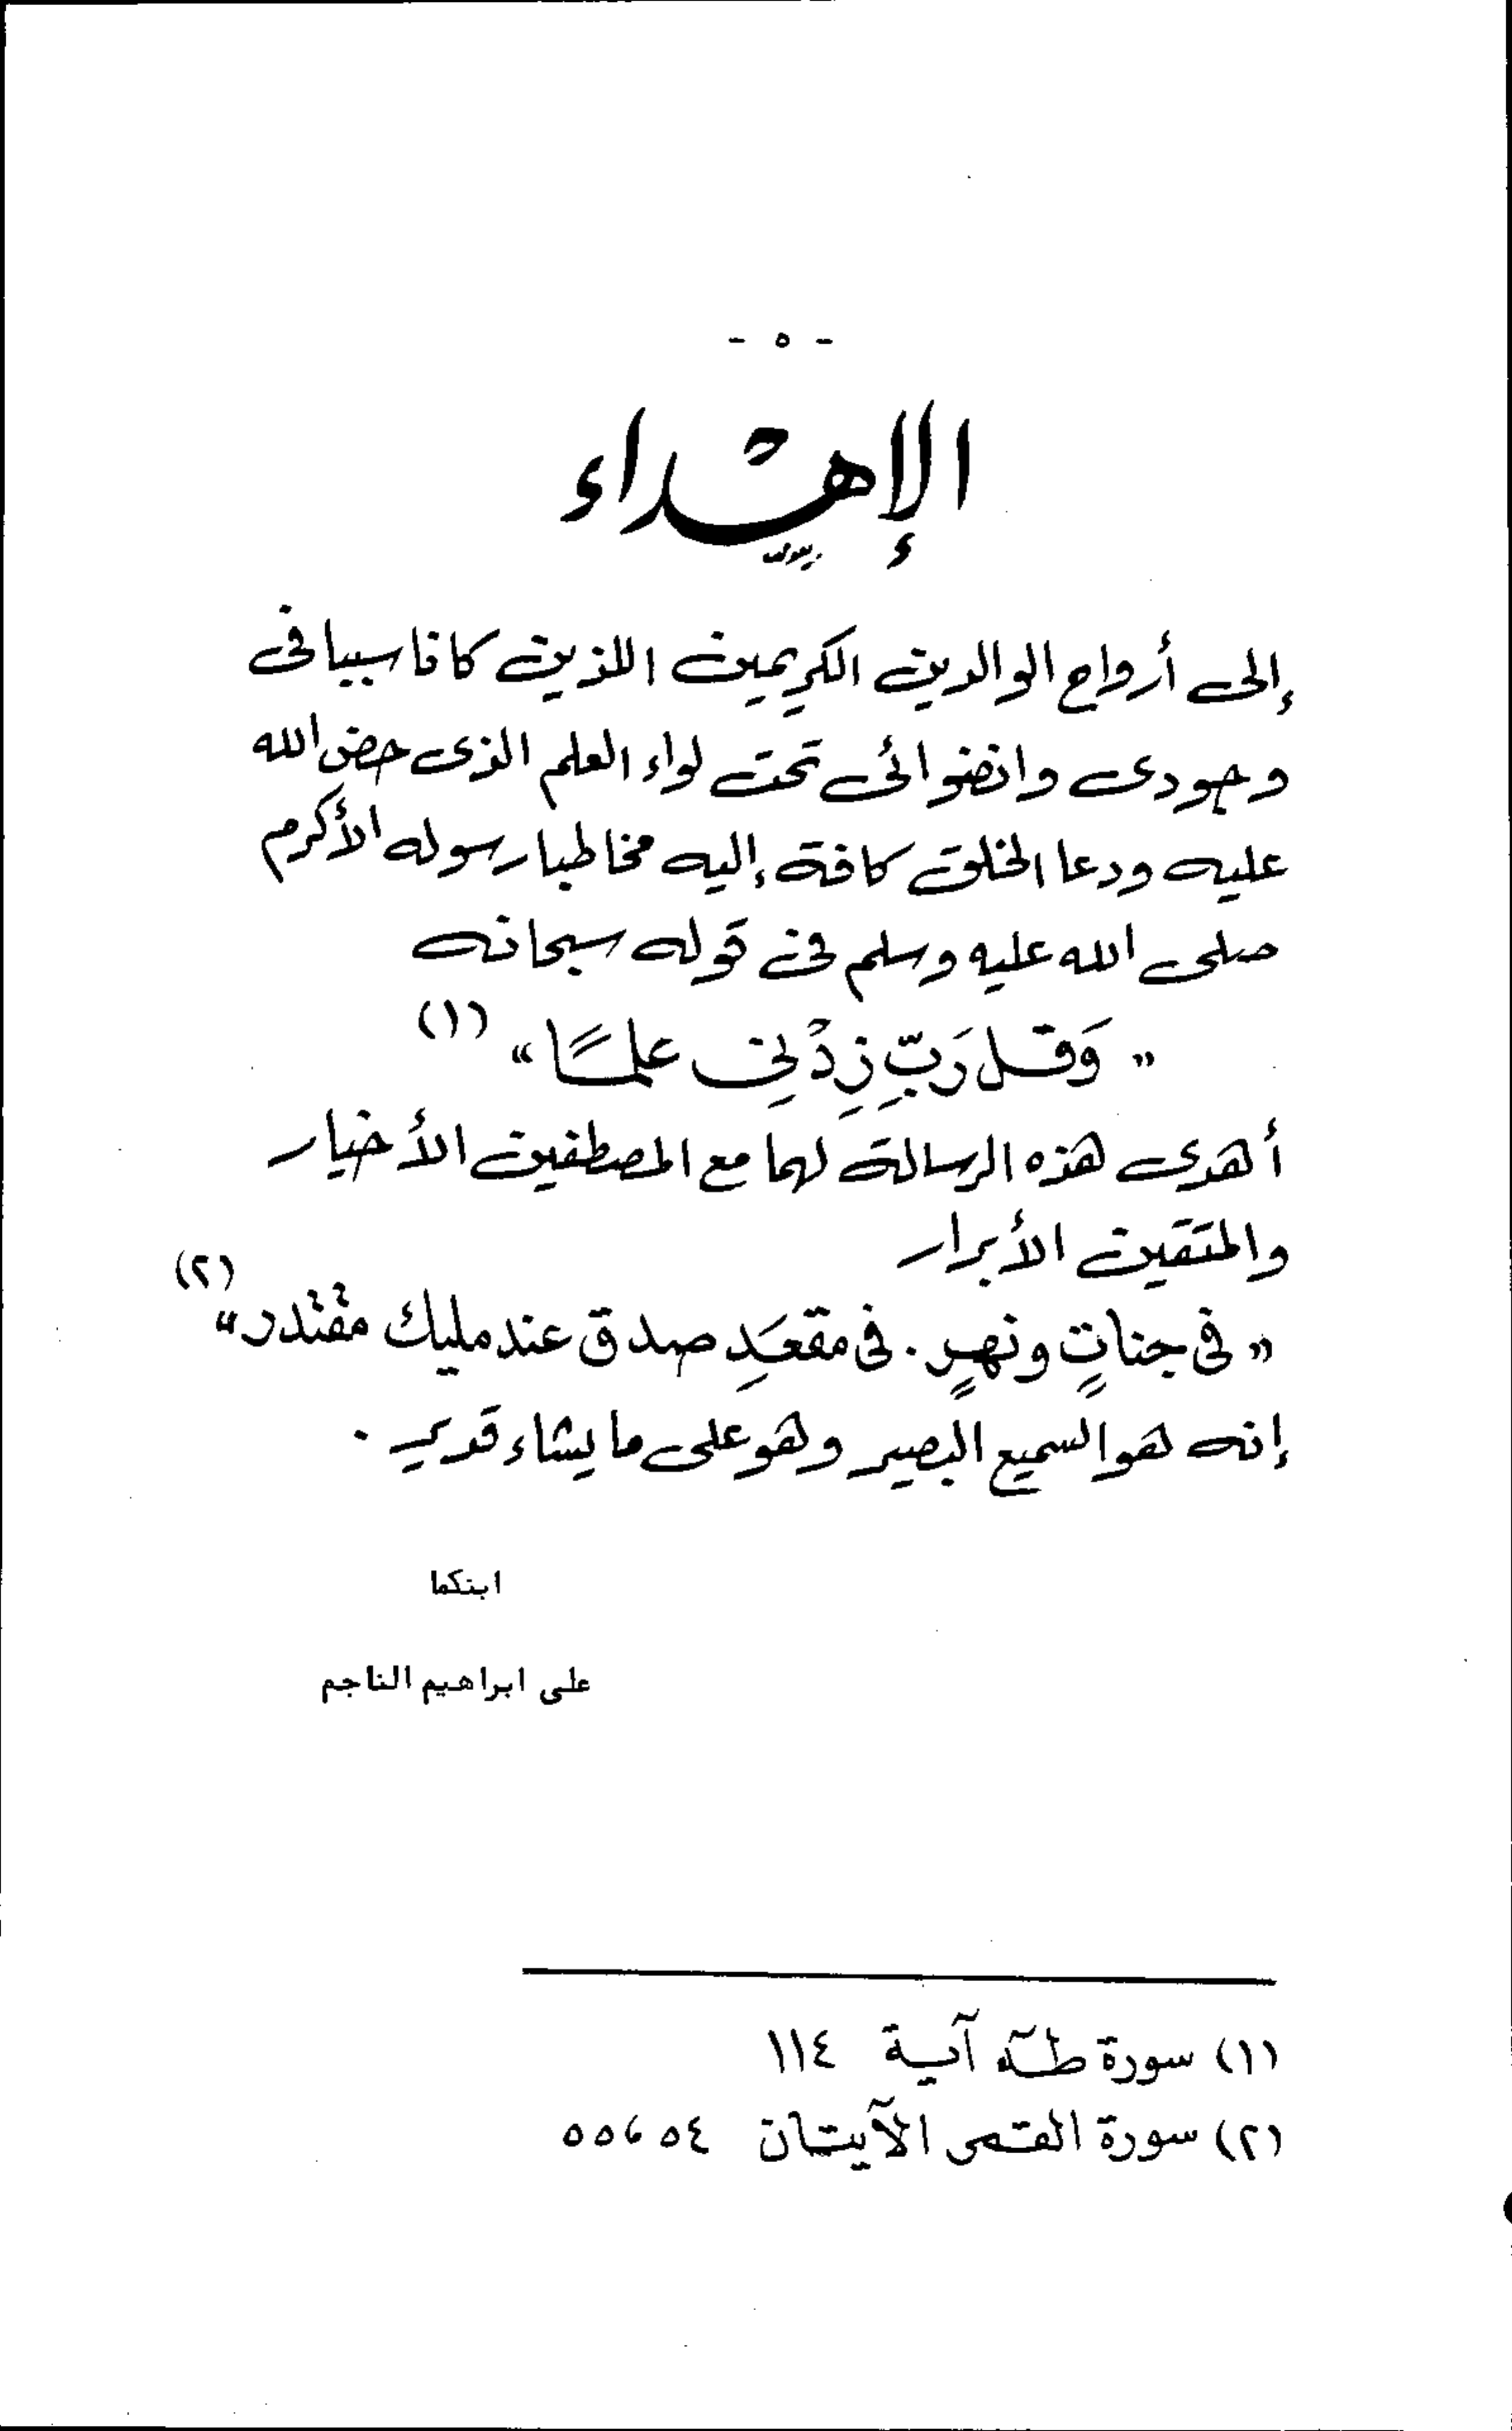 - ٥ -
الإهداء
إلى أرواح الوالدين الكريمين اللذين كانا سببا فى
وجودى وانضوائى تحت لواء العلم الذى حض الله
عليه ودعا الخلق كافة إليه مخاطبا رسوله الأكرم
صلى الله عليه وسلم فى قوله سبحانه
« وَقل رَبِّ زِدْنِى علمًا » (١)
أهدى هذه الرسالة لهما مع المصطفين الأخيار
والمتقين الأبرار
« فى جناتٍ ونهرٍ . فى مقعَدِ صدق عند مليك مقتدر » (٢)
إنه هو السميع البصير وهو على ما يشاء قدير .
ابنكما
على ابراهيم الناجم
(١) سورة طه آية ١١٤
(٢) سورة القمر الآيتان ٥٤ ، ٥٥